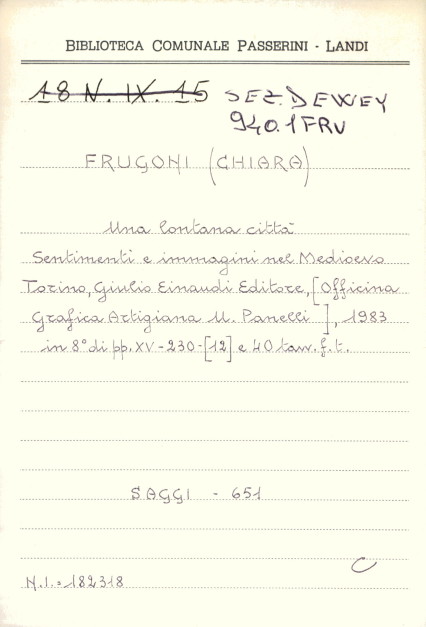 BIBLIOTECA COMUNALE PASSERINI - LANDI
18 N. IX. 15 SEZ. DEWEY
940.1 FRU
FRUGONI (CHIARA)
Una lontana città
Sentimenti e immagini nel Medioevo
Torino, Giulio Einaudi Editore, [Officina
Grafica Artigiana U. Panelli ], 1983
in 8° di pp. XV-230-[12] e 40 tavv. f. t.
SAGGI - 651
C
N.I.=182318